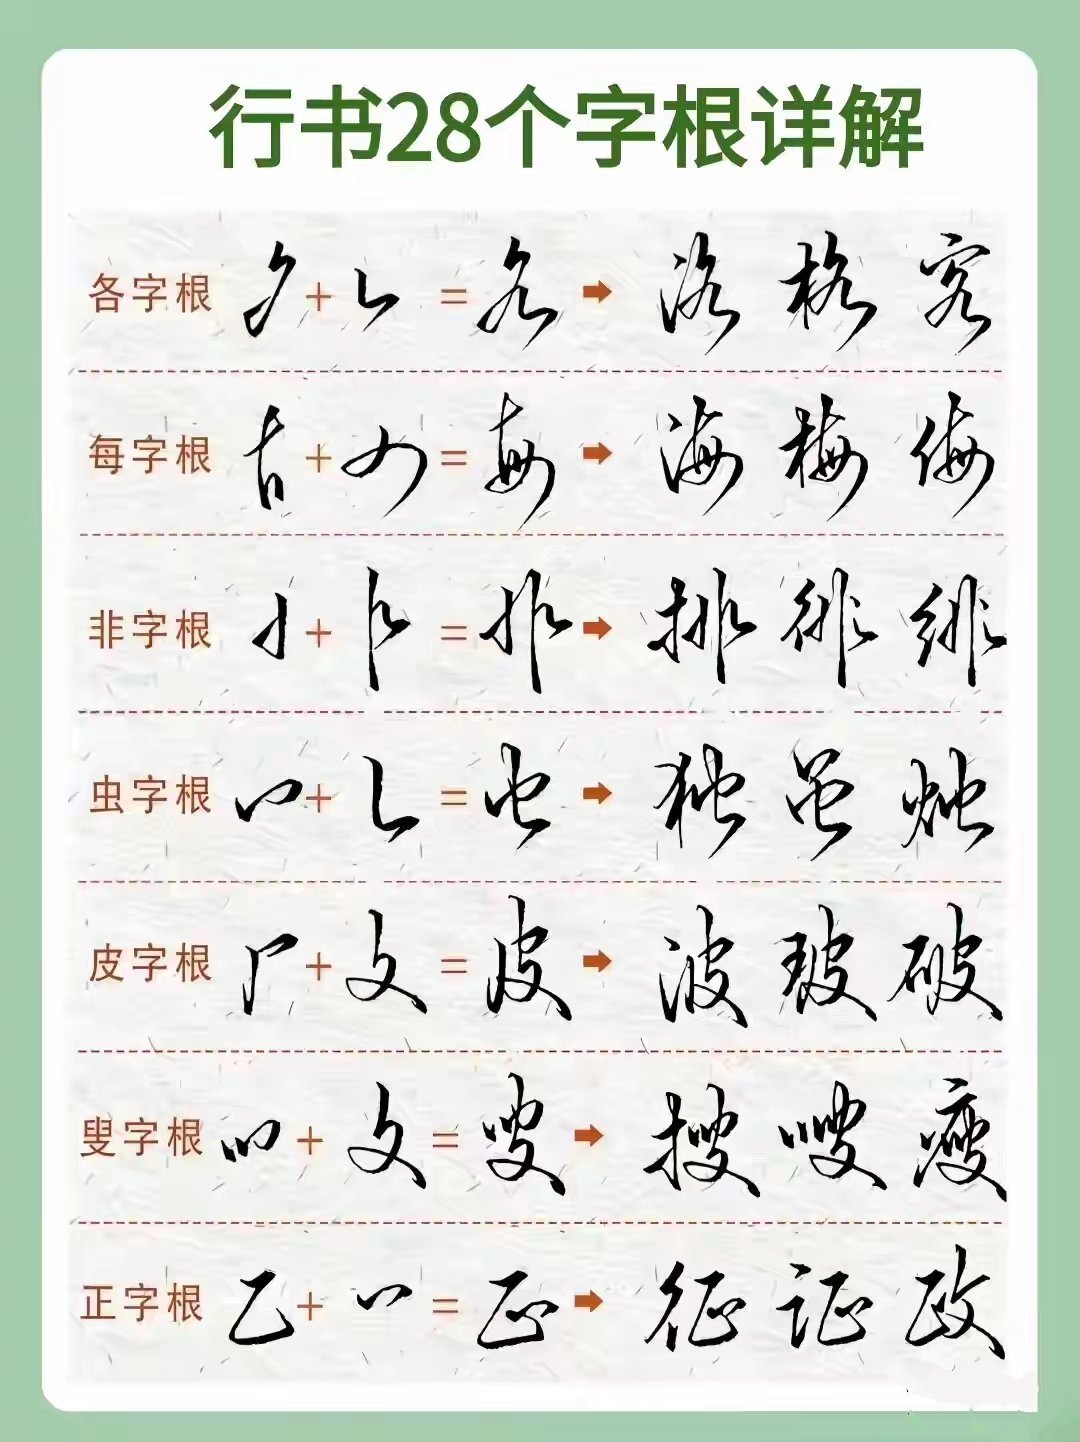 行书28个字根详解
各字根 + = 各 ➡ 洛 格 客
每字根 + = 每 ➡ 海 梅 侮
非字根 + = 非 ➡ 排 徘 绯
虫字根 + = 虫 ➡ 独 虽 烛
皮字根 + = 皮 ➡ 波 玻 破
叟字根 + 攵 = 叟 ➡ 搜 嗖 瘦
正字根 + = 正 ➡ 征 证 政